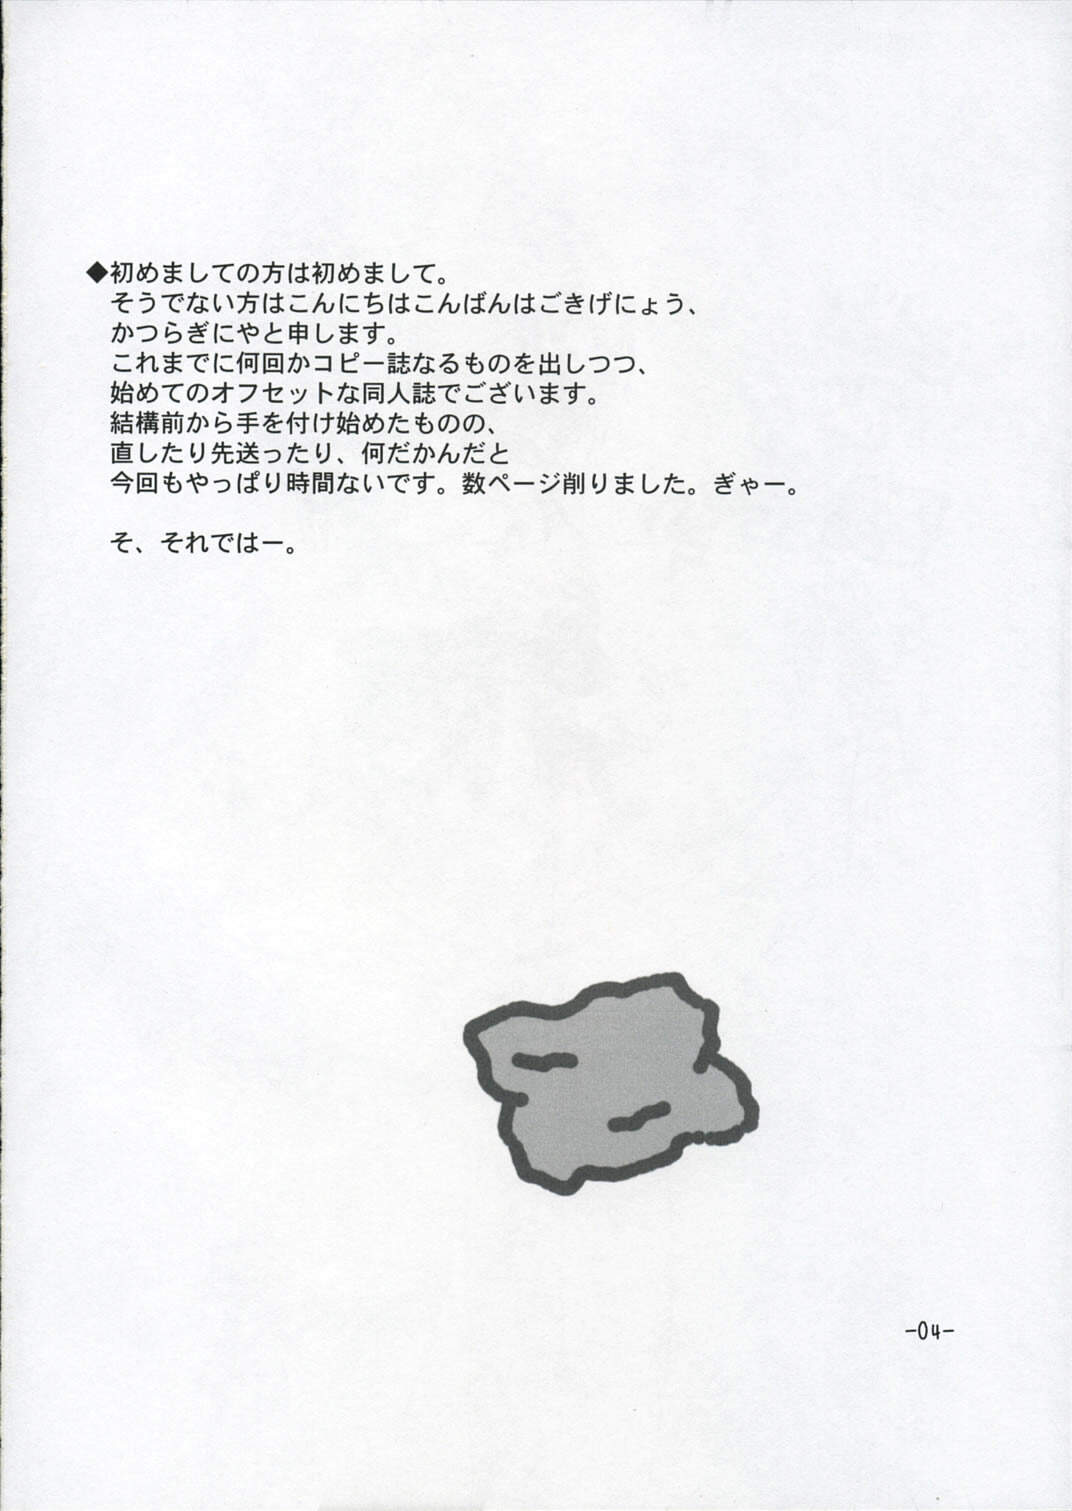 ◆初めましての方は初めまして。
そうでない方はこんにちはこんばんはごきげにょう、
かつらぎにやと申します。
これまでに何回かコピー誌なるものを出しつつ、
始めてのオフセットな同人誌でございます。
結構前から手を付け始めたものの、
直したり先送ったり、何だかんだと
今回もやっぱり時間ないです。数ページ削りました。ぎゃー。
そ、それではー。
-04-